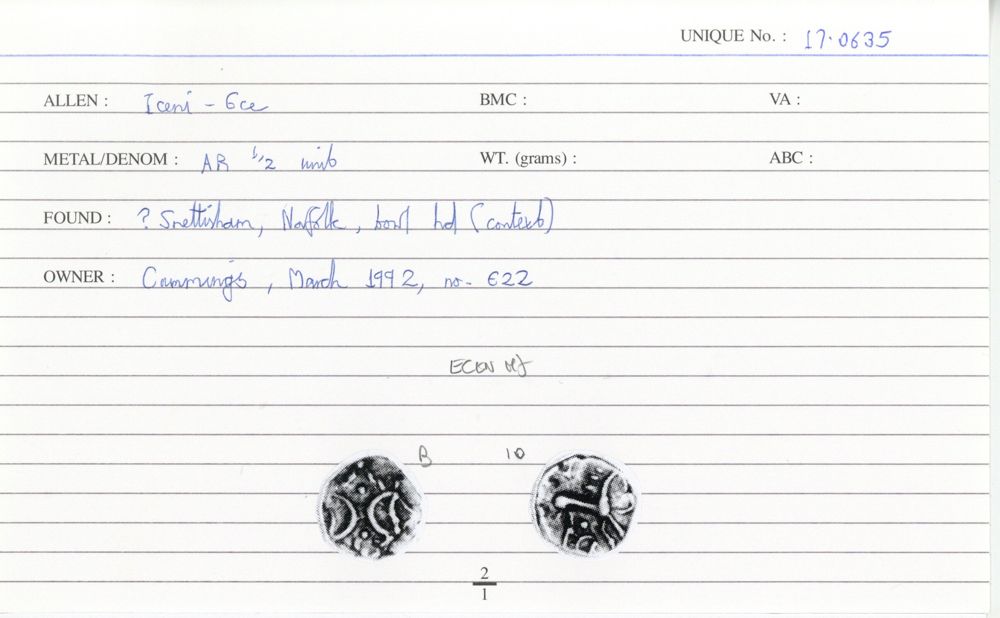 UNIQUE No. : 17.0635
ALLEN : Iceni - 6ce BMC : VA :
METAL/DENOM : AR 1/2 unit WT. (grams) : ABC :
FOUND : ? Snettisham, Norfolk, bowl hd (context)
OWNER : Cummings, March 1992, no. 622
ECEN
B 10
2
1